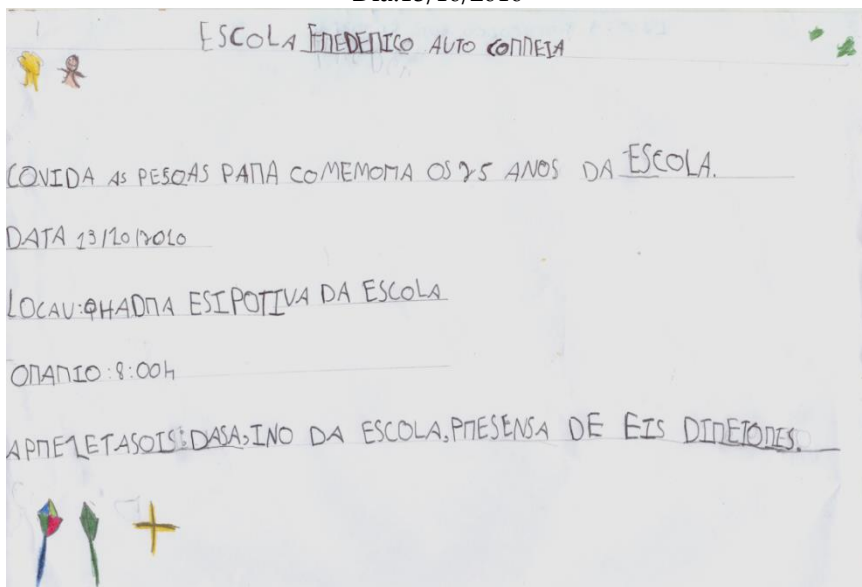 Dia:13/10/2010
ESCOLA FREDERICO AUTO CORREIA
COVIDA AS PESOAS PARA COMEMORA OS 25 ANOS DA ESCOLA.
DATA 13/10/2010
LOCAU:QHADRA ESIPOTIVA DA ESCOLA
ORARIO:8:00h
APREZETASOIS:DASA,INO DA ESCOLA,PRESENSA DE EIS DIRETORES.